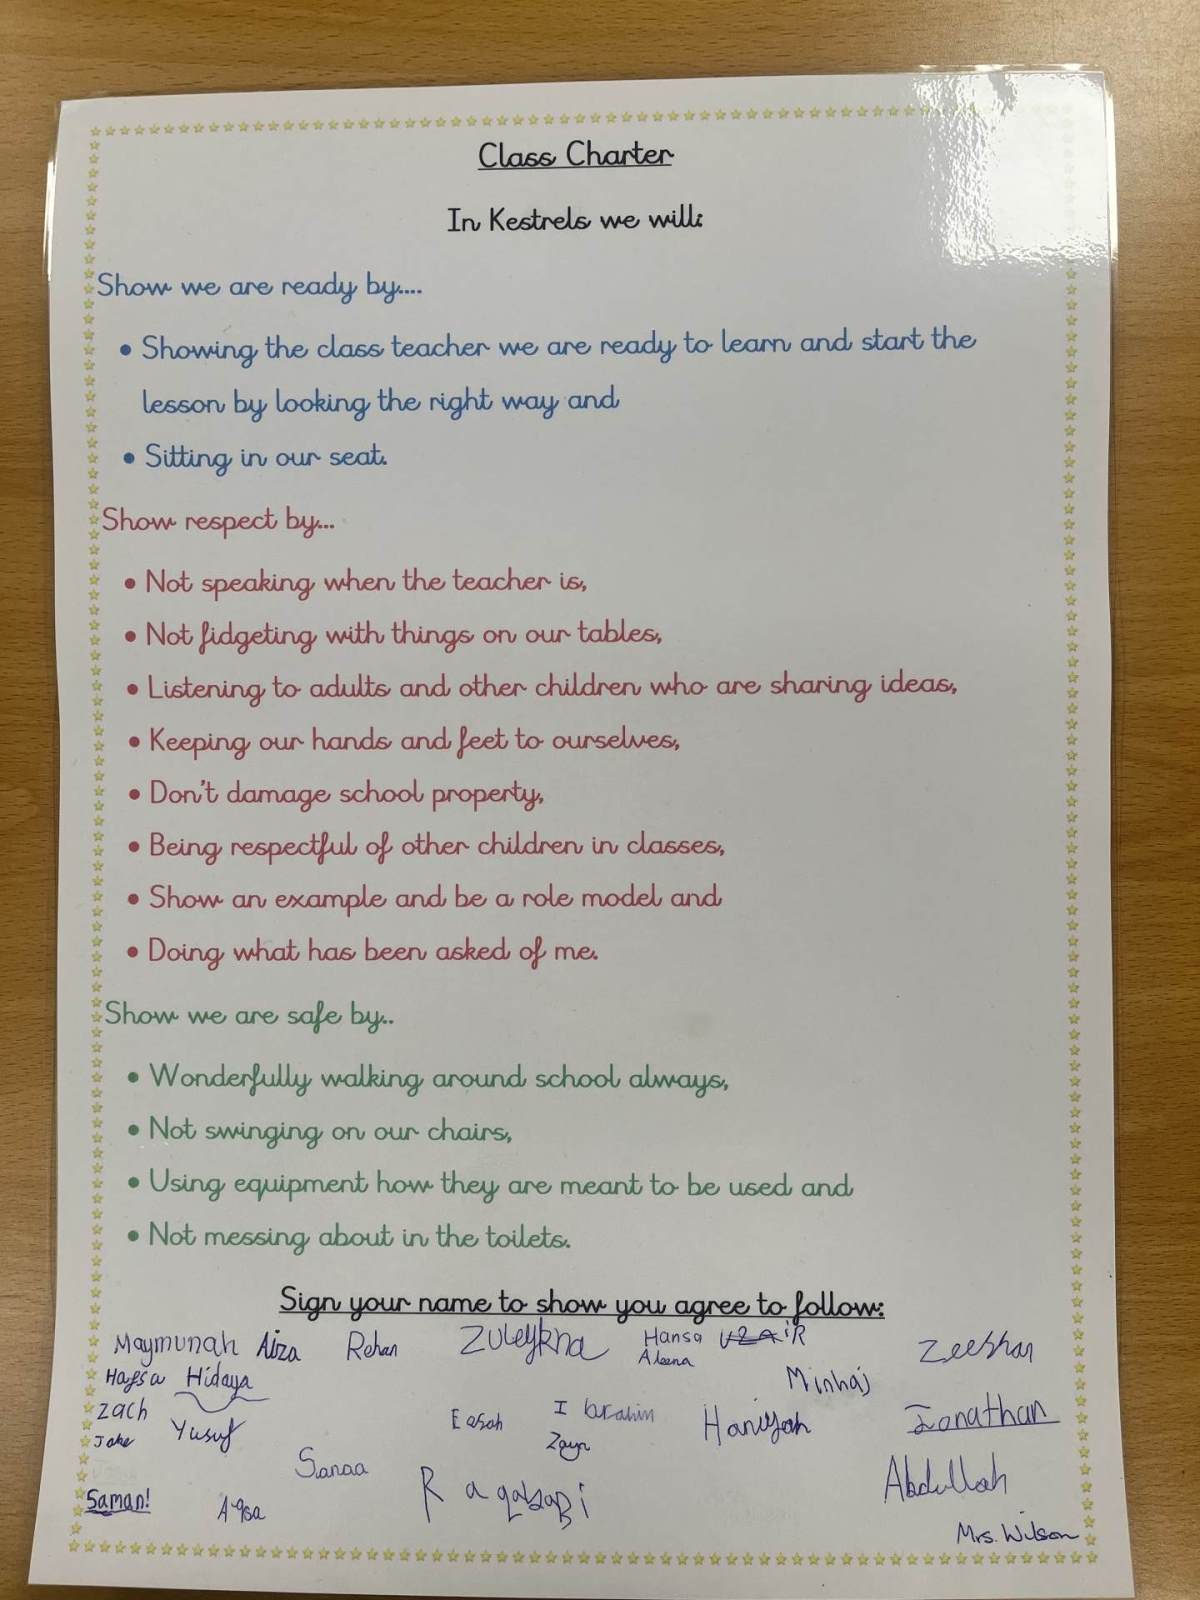 Class Charter
In Kestrels we will:
Show we are ready by....
• Showing the class teacher we are ready to learn and start the
lesson by looking the right way and
• Sitting in our seat.
Show respect by...
• Not speaking when the teacher is,
• Not fidgeting with things on our tables,
• Listening to adults and other children who are sharing ideas,
• Keeping our hands and feet to ourselves,
• Don't damage school property,
• Being respectful of other children in classes,
• Show an example and be a role model and
• Doing what has been asked of me.
Show we are safe by..
• Wonderfully walking around school always,
• Not swinging on our chairs,
• Using equipment how they are meant to be used and
• Not messing about in the toilets.
Sign your name to show you agree to follow:
Maymunah Aiza Rehan Zuleykha Hansa UZAiR Zeeshan
Aleena
Hafsa Hidaya Minhaj
Zach Yusuf Easah Ibrahim Haniyah Jonathan
Jake Zayn
Sanaa Abdullah
Saman! Aqsa
Mrs. Wilson